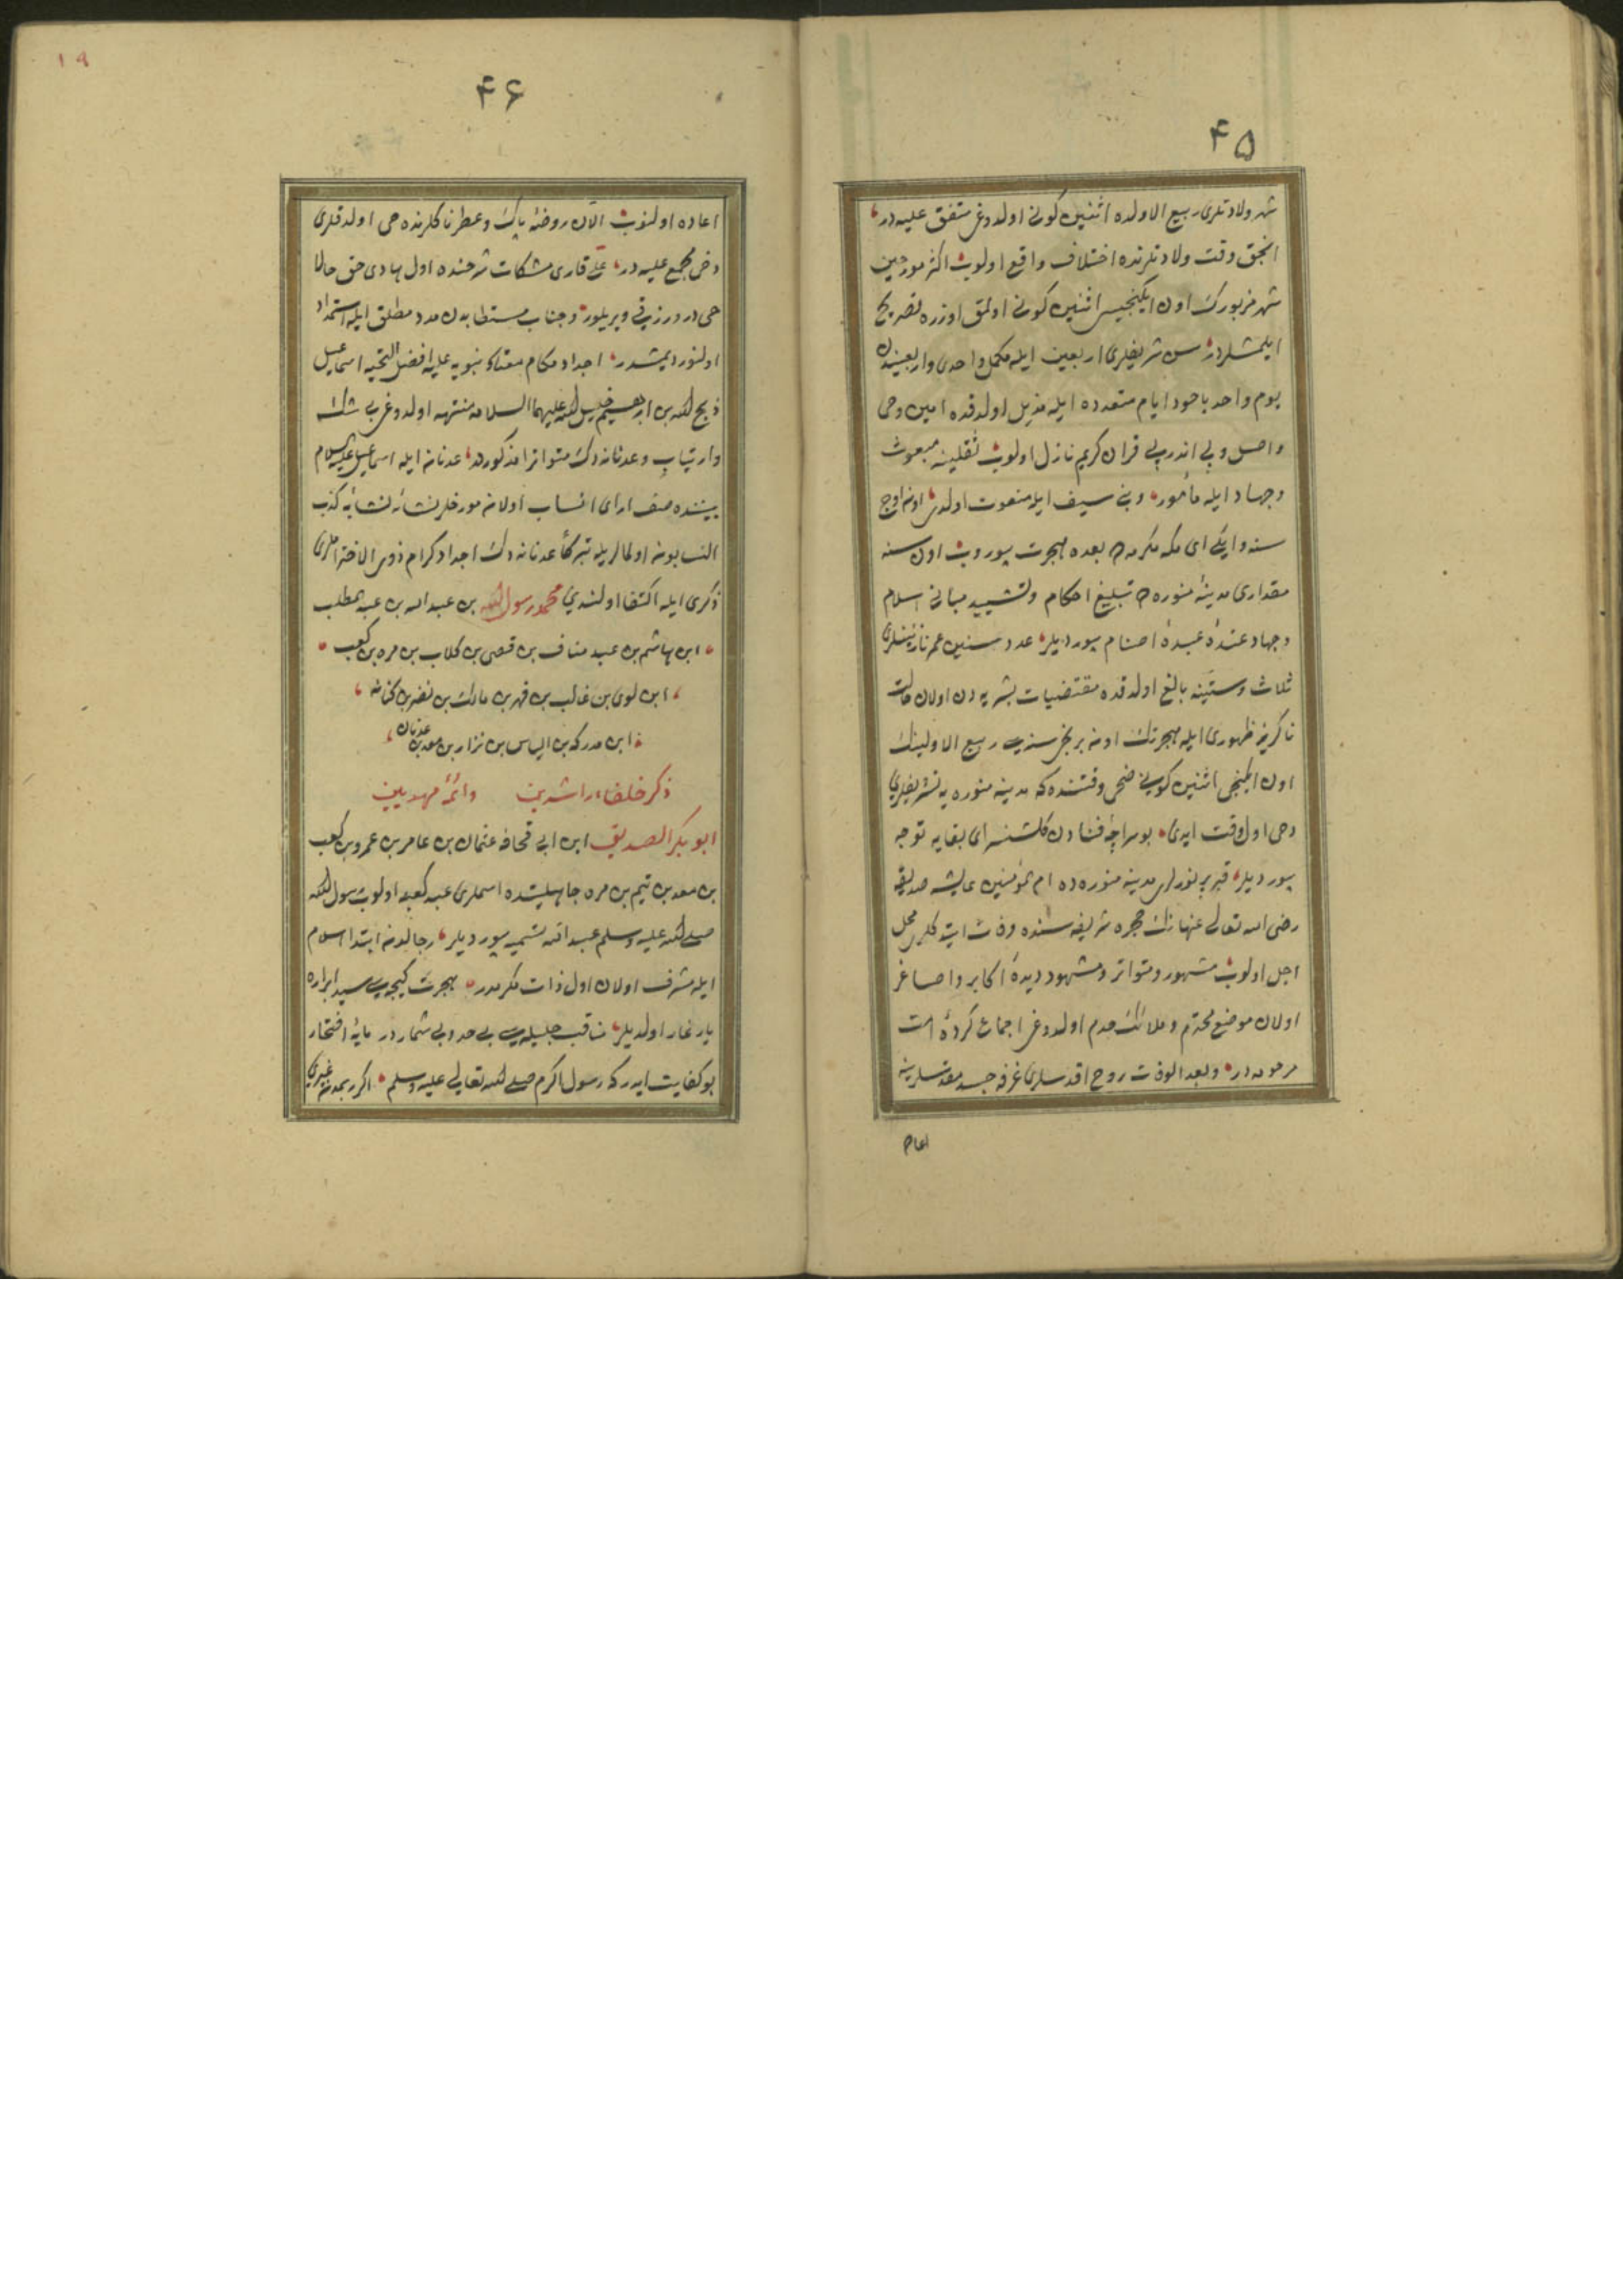 ۴۵
شهر ولادتلری ربیع الاولده اثنین کونی اولدوغی متفق علیه در
انجق وقت ولادتلرنده اختلاف واقع اولوب اکثر مورخین
شهر مزبورک اون ایکنجیسی اثنین کونی اولمق اوزره تصریح
ایلمشلردر سن شریفلری اربعین ایله مکمل واحدی واربعیندن
یوم واحد یاخود ایام متعدده ایله مذیل اولدقده امین وحی
واصل وپی اندر پی قران کریم نازل اولوب ثقلینه مبعوث
وجهاد ایله مأمور ونبی سیف ایله منعوت اولدی اون اوچ
سنه وایکی ای مکه مکرمه ده بعده هجرت بیوروب اون سنه
مقداری مدینهٔ منوره ده تبلیغ احکام وتشیید مبانی اسلام
وجهاد عندهٔ عبدهٔ اصنام بیوردیلر عدد سنین عمر نازنینلری
ثلاث وستینه بالغ اولدقده مقتضیات بشریه دن اولان حالت
ناکزیر ظهوری ایله هجرتک اون برنجی سنه سی ربیع الاولینک
اون ایکنجی اثنین کونی ضحی وقتنده که مدینه منوره یه تشریفلری
دخی اول وقت ایدی بو سراچهٔ فنادن کلشنسرای بقایه توجه
بیوردیلر قبر پر نورلری مدینه منوره ده ام المؤمنین عایشه صدیقه
رضی الله تعالی عنهانک حجره شریفه سنده وفات ایتدکلری محل
اجل اولوب مشهور ومتواتر ومشهود دیدهٔ اکابر واصاغر
اولان موضع محترم وملائک خدم اولدوغی اجماع کردهٔ امت
مرحومه در وبعد الوفات روح اقدسلری غرفه جسد مقدسلرینه
اعاده
۱۹
۴۶
اعاده اولنوب الآن روضهٔ پاک وعطرناکلرنده حی اولدقلری
دخی مجمع علیه در علی قاری مشکات شرحنده اول هادی حق حالا
حی در ورزقی ویریلور وجناب مستطابدن مدد مطلق ایله استمداد
اولنور دیمشدر اجداد مکام نبویه علیه افضل التحیه اسماعیل
ذبیح الله بن ابراهیم خلیل الله علیهما السلامه منتهی اولدوغی بی شک
وارتیاب وعدنانه دک متواترا مذکور در عدنان ایله اسماعیل علیه السلام
بیننده صف ارای انساب اولان مورخلر نشانه نشابه کذب
النسابون اولمالریله تبرکا عدنانه دک اجداد کرام ذوی الاحتراملری
ذکری ایله اکتفا اولندی محمد رسول الله بن عبد الله بن عبد المطلب
ابن هاشم بن عبد مناف بن قصی بن کلاب بن مره بن کعب
ابن لوی بن غالب بن فهر بن مالک بن نضر بن کنانه
ابن مدرکه بن الیاس بن نزار بن معد بن عدنان
ذکر خلفاء راشدین وائمهٔ مهدیین
ابو بکر الصدیق ابن ابی قحافه عثمان بن عامر بن عمرو بن کعب
بن سعد بن تیم بن مره جاهلیتده اسملری عبد کعبه اولوب رسول الله
صلی الله علیه وسلم عبد الله تسمیه بیوردیلر رجالدن ابتدا اسلام
ایله مشرف اولان اول ذات مکرمدر هجرت کیجه سی سید ابراره
یار غار اولدیلر مناقب جلیله سی بی حد وبی شمار در مایهٔ افتخار
بو کفایت ایدر که رسول اکرم صلی الله تعالی علیه وسلم اکر ربمدن غیری